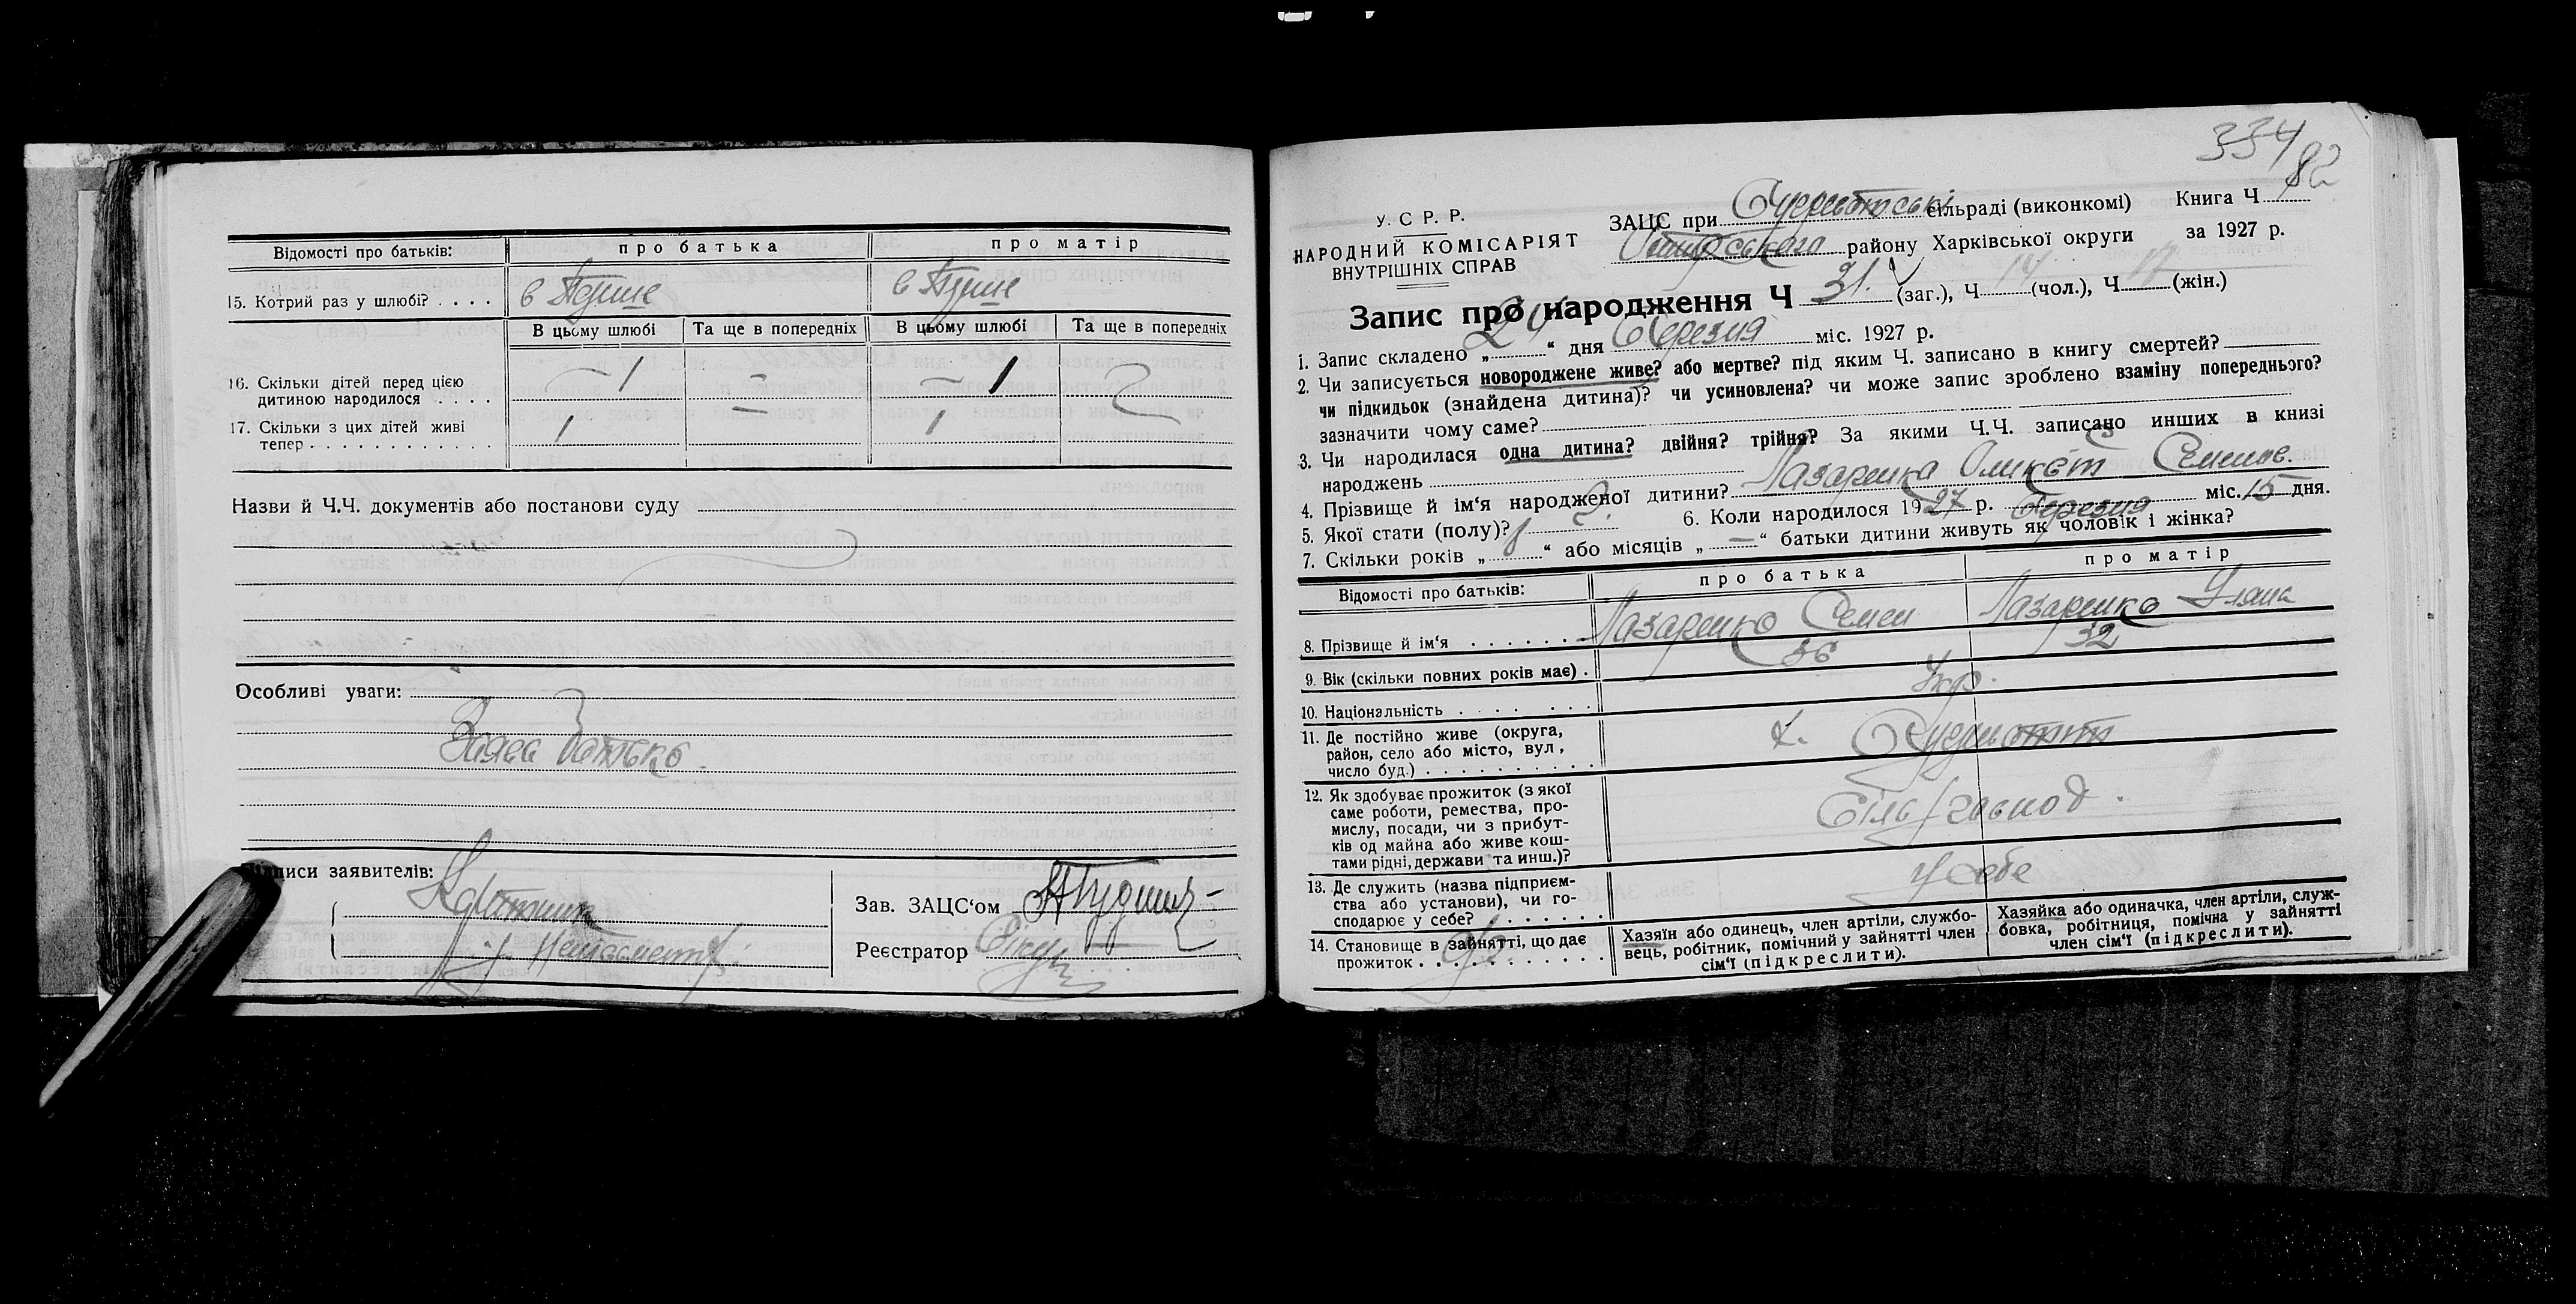 Відомості про батьків: про батька про матір
15. Котрий раз у шлюбі? . . . . в перше в перше
В цьому шлюбі Та ще в попередніх В цьому шлюбі Та ще в попередніх
16. Скільки дітей перед цією
дитиною народилося . . . . 1 — 1
17. Скільки з цих дітей живі
тепер . . . . . . . . . . . . 1 — 1
Назви й Ч.Ч. документів або постанови суду
Особливі уваги:
Заява батька.
Підписи заявителів:
Зав. ЗАЦС‘ом
Реєстратор
334
82
У. С Р. Р.
НАРОДНИЙ КОМІСАРІЯТ
ВНУТРІШНІХ СПРАВ
ЗАЦС при сільраді (виконкомі) Книга Ч
району Харківської округи за 1927 р.
Запис про народження Ч 31. (заг.), Ч 14 (чол.), Ч 17 (жін.)
1. Запис складено „ “ дня Березня міс. 1927 р.
2. Чи записується новороджене живе? або мертве? під яким Ч. записано в книгу смертей?
чи підкидьок (знайдена дитина)? чи усиновлена? чи може запис зроблено взаміну попереднього?
зазначити чому саме?
3. Чи народилася одна дитина? двійня? трійня? За якими Ч.Ч. записано инших в книзі
народжень
4. Прізвище й ім‘я народженої дитини? Лазаренка
5. Якої стати (полу)? 6. Коли народилося 1927 р. Березня міс. 15 дня.
7. Скільки років „ “ або місяців „ — “ батьки дитини живуть як чоловік і жінка?
Відомості про батьків: про батька про матір
8. Прізвище й ім‘я . . . . . . . Лазаренко Семен Лазаренко Уляна
9. Вік (скільки повних років має) . 36 32
10. Національність . . . . . . . Укр.
11. Де постійно живе (округа,
район, село або місто, вул,
число буд.) . . . . . . . . . . .
12. Як здобуває прожиток (з якої
саме роботи, ремества, про-
мислу, посади, чи з прибут-
ків од майна або живе кош-
тами рідні, держави та инш.)? сільгоспод.
13. Де служить (назва підприєм-
ства або установи), чи го-
сподарює у себе? . . . . . . . У себе
14. Становище в зайнятті, що дає
прожиток . . . . . . . . . . .
Хазяїн або одинець, член артіли, службо-
вець, робітник, помічний у зайнятті член
сім‘ї (підкреслити).
Хазяйка або одиначка, член артіли, служ-
бовка, робітниця, помічна у зайнятті
член сім‘ї (підкреслити).